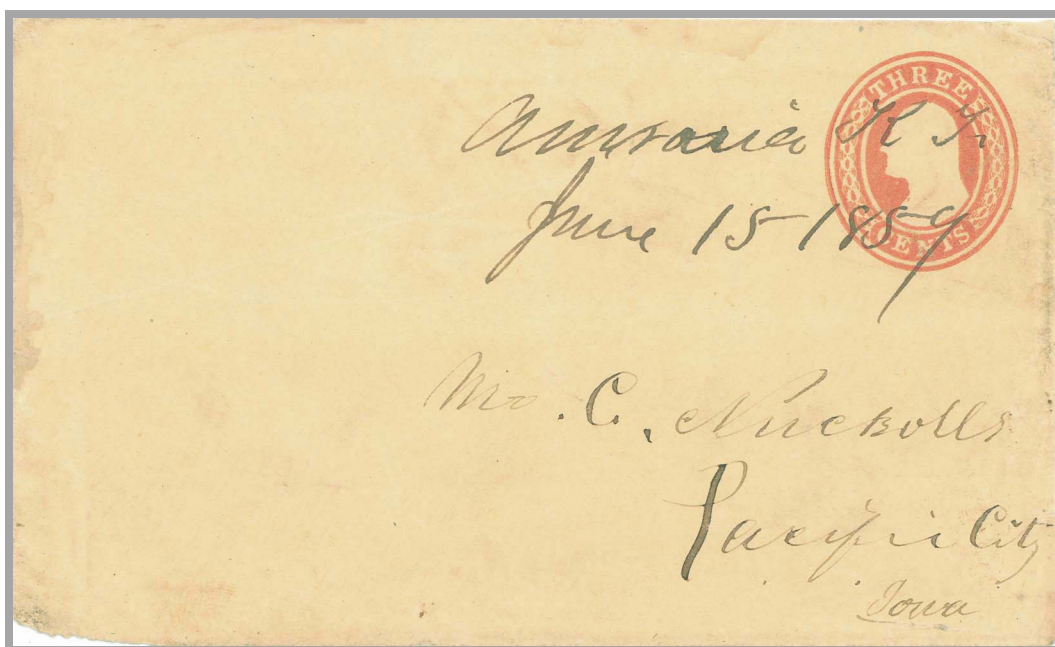 THREE
CENTS
Auraria K. T.
June 15 1859
Mr. C. Nuckolls
Pacific City
Iowa